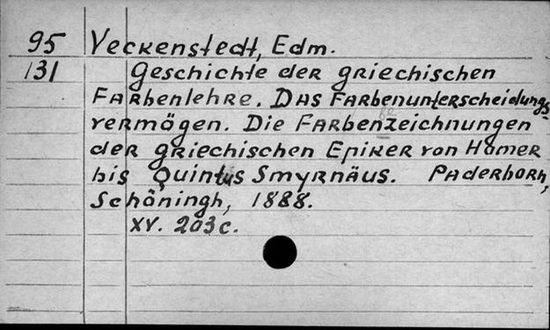 95 Veckenstedt, Edm.
131 Geschichte der griechischen
Farbenlehre. Das Farbenunterscheidungs-
vermögen. Die Farbenbezeichnungen
der griechischen Epiker von Homer
bis Quintus Smyrnäus. Paderborn,
Schöningh, 1888.
XV. 203 c.